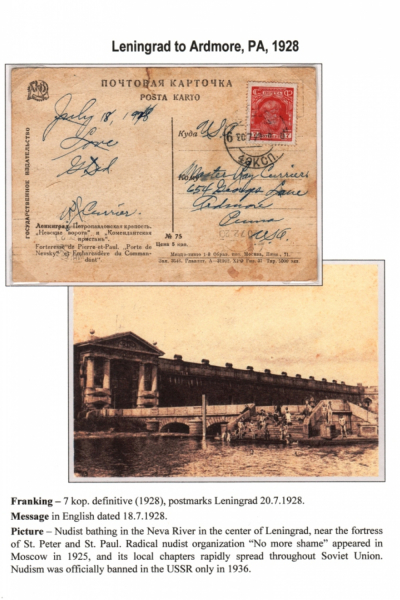 Leningrad to Ardmore, PA, 1928
ПОЧТОВАЯ КАРТОЧКА
POSTA KARTO
July 18, 1928
Love
Dad
R. Currier.
ГОСУДАРСТВЕННОЕ ИЗДАТЕЛЬСТВО
Куда USA
Master Ray Currier
654 Georges Lane
Ardmore
Penna
USA.
Ленинград—Петропавловская крепость.
„Невские ворота“ и „Комендантская
пристань“.
Forteresse de Pierre et-Paul. „Porte de
Nevsky“ et Embarcadère du Comman-
dant“.
№ 75
Цена 5 коп.
Franking – 7 kop. definitive (1928), postmarks Leningrad 20.7.1928.
Message in English dated 18.7.1928.
Picture – Nudist bathing in the Neva River in the center of Leningrad, near the fortress
of St. Peter and St. Paul. Radical nudist organization “No more shame” appeared in
Moscow in 1925, and its local chapters rapidly spread throughout Soviet Union.
Nudism was officially banned in the USSR only in 1936.